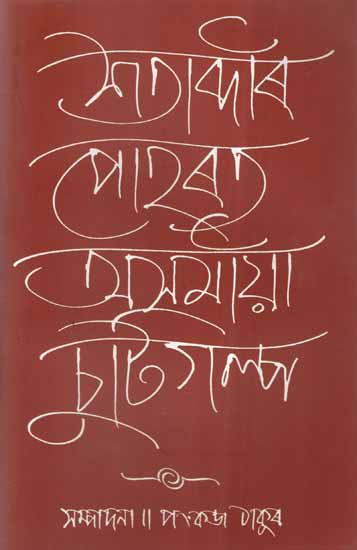 শতাব্দীৰ
পোহৰত
অসমীয়া
চুটিগল্প
সম্পাদনা॥ পংকজ ঠাকুৰ